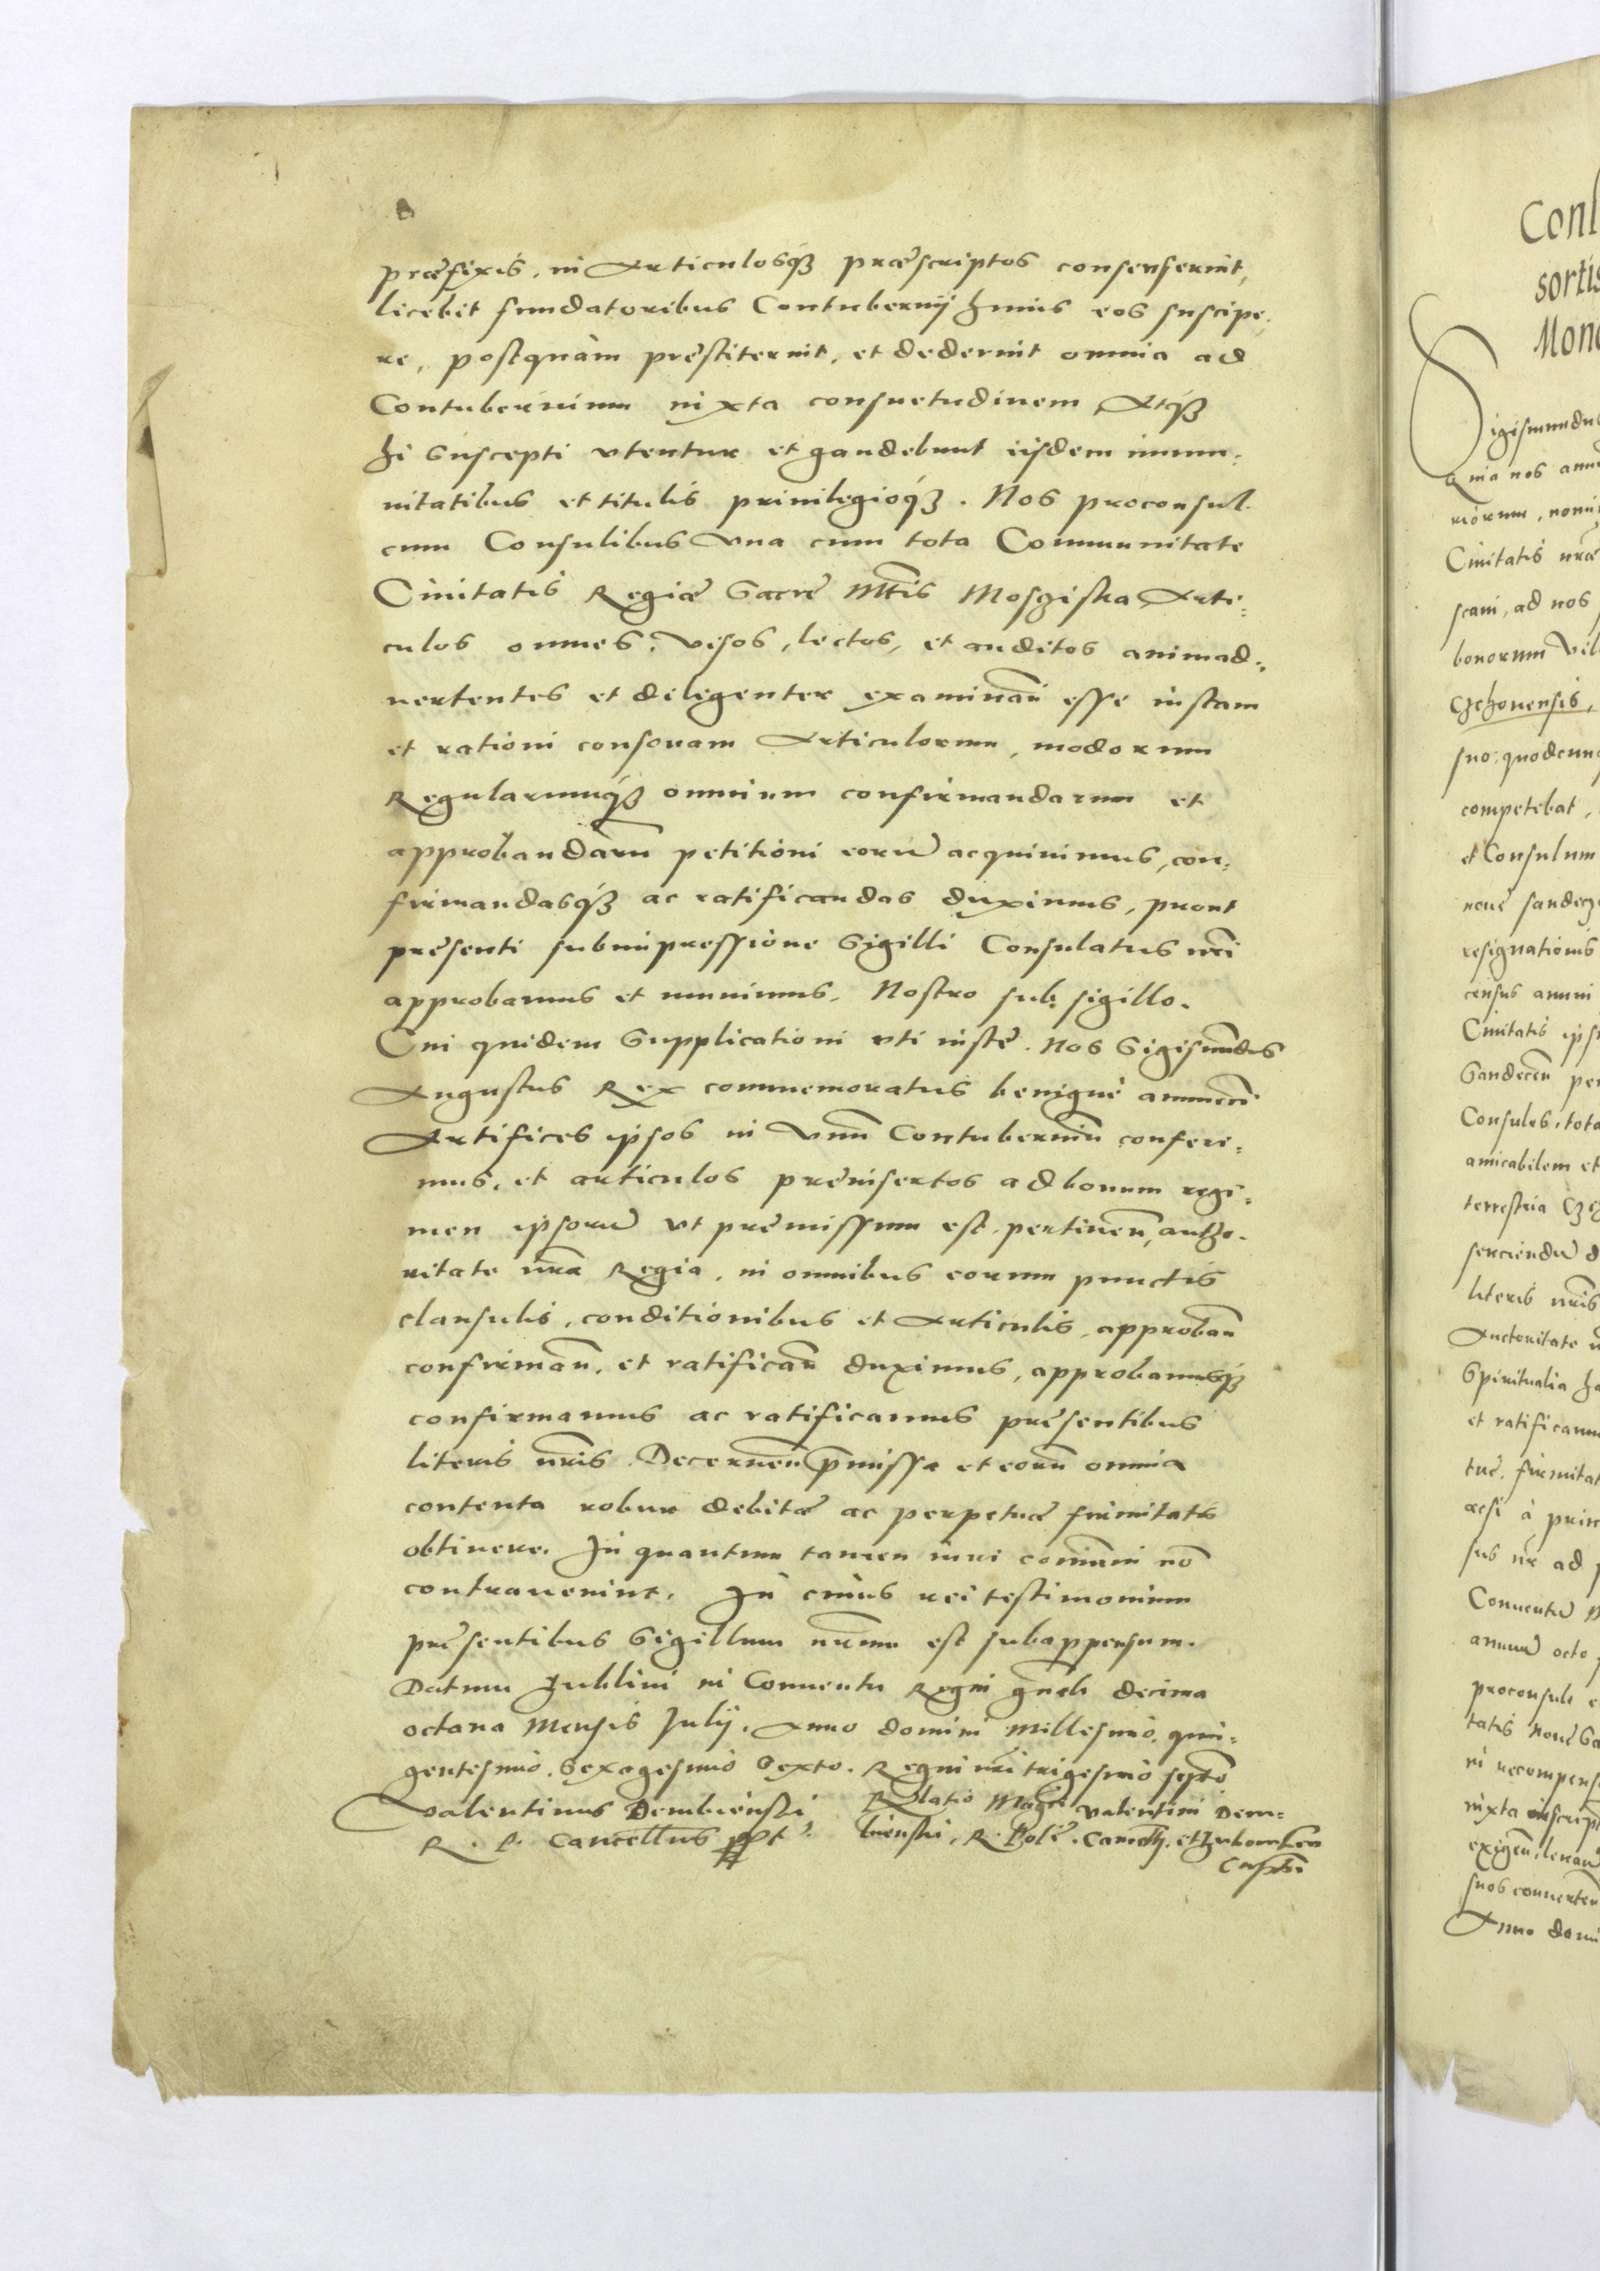 præfixis, in Articulosq3 præscriptos consenserint,
licebit fundatoribus Contubernij huius eos suscipe:
re, postquàm prestiterint, et dederint omnia ad
Contubernium iuxta consuetudinem Atq3
hi suscepti vtentur et gaudebunt eisdem immu:
nitatibus et titulis priuilegioq3. Nos proconsul
cum Consulibus vna cum tota Communitate
Ciuitatis Regiæ Sacræ Mttis Moszciska Arti:
culos omnes, visos, lectos, et auditos animad:
uertentes et deligenter examinan esse iustam
et rationi consonam Articulorum, modorum
Regularumq3 omnium confirmandarum et
approbandaru petitioni eoru acquiuimus, con:
firmandasq3 ac ratificandas duximus, prout
presenti subimpressione Sigilli Consulatus nri
approbamus et munimus. Nostro sub sigillo.
Cui quidem Supplicationi vti iuste. Nos Sigismudus
Augustus Rex commemoratus benigne annuen
Artifices ipsos in vnu Contuberniu confere:
mus, et articulos preinsertos ad bonum regi:
men ipsoru vt premissum est pertinen, autho:
ritate nra Regia, in omnibus eorum punctis
clausulis, conditionibus et Articulis, approban
confirman, et ratifican duximus, approbamusq3
confirmamus ac ratificamus presentibus
literis nris. Decernen pmissa et eoru omnia
contenta robur debitæ ac perpetuæ firmitatis
obtinere. In quantum tamen iuri comuni no
contraueniunt. In cuius rei testimonium
presentibus Sigillum nrum est subappensum.
Datum Lublini in Conuentu Regni gnali decima
octaua Mensis Julij. Anno domini Millesimo, quin:
gentesimo, Sexagesimo Sexto. Regni nri trigesimo septo
Valentinus Dembienski
R. P. Cancellrius sspt
Relatio Magci Valentini Dem:
bienski, R. Polie. Cancell.
Conl
sortis
Mon
Sigismundus
Quia nos annu
riorum, nomin
Ciuitatis nræ
scani, ad nos
bonorum vil
Czchouensis,
suo: quodcunq
competebat,
et Consulum
noue sandecz
resignationis
census annui
Ciuitatis ips
Sandecen per
Consules, tota
amicabilem et
terrestria Cz
literis nris
Auctoritate n
Spiritualia ha
et ratificamu
tue, firmitat
acsi à prin
sus nr ad
Conuentu
annuu octo
proconsuli e
tatis noue Sa
in recompens
iuxta inscript
exigen, leuan
suos conuerten
Anno domi